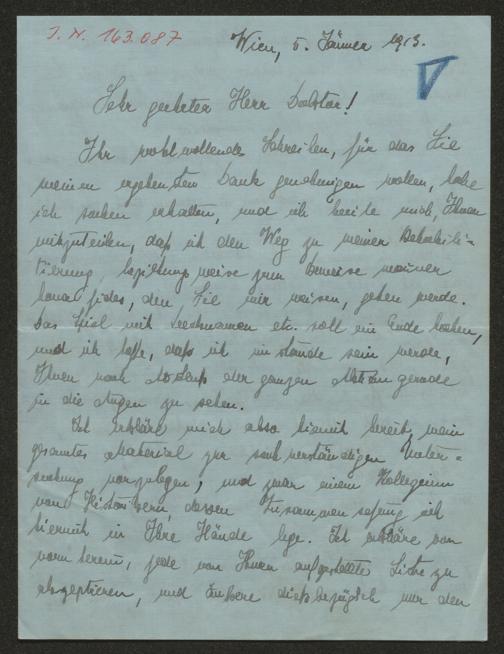 J. N. 163.087
Wien, 5. Jänner 1913.
Sehr geehrter Herr Doktor!
Ihr wohlwollendes Schreiben, für das Sie
meinen ergebensten Dank genehmigen wollen, habe
ich soeben erhalten, und ich beeile mich, Ihnen
mitzuteilen, daß ich den Weg zu meiner Rehabili-
tierung, beziehungsweise zum Beweise meiner
bona fides, den Sie mir weisen, gehen werde.
Das Spiel mit Decknamen etc. soll ein Ende haben,
und ich hoffe, daß ich imstande sein werde,
Ihnen nach Abschluß der ganzen Aktion gerade
in die Augen zu sehen.
Ich erkläre mich also hiemit bereit, mein
gesamtes Material zur sachverständigen Unter-
suchung vorzulegen, und zwar einem Kollegium
von Historikern, dessen Zusammensetzung ich
hiemit in Ihre Hände lege. Ich erkläre von
vornherein, jede von Ihnen aufgestellte Liste zu
akzeptieren, und äußere diesbezüglich nur den